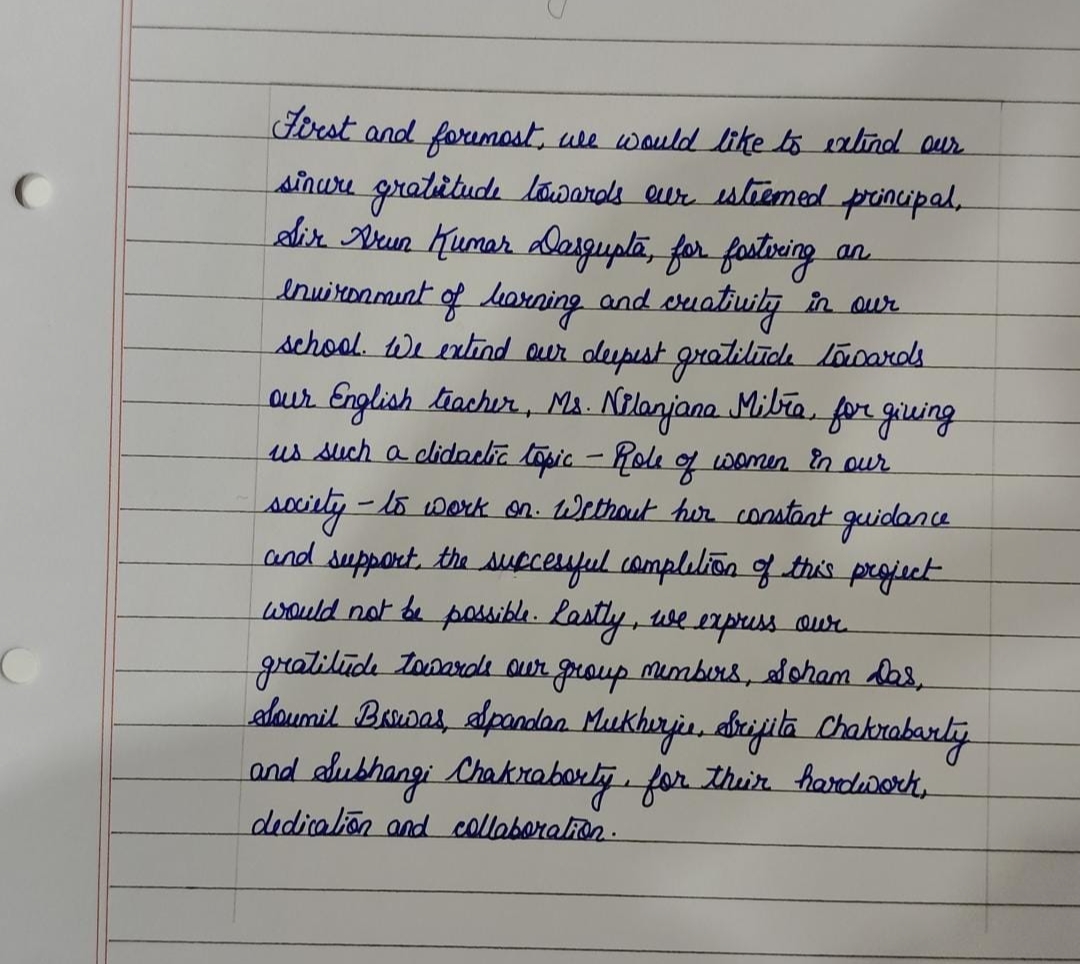 First and foremost, we would like to extend our
sincere gratitude towards our esteemed principal,
Sir Arun Kumar Dasgupta, for fostering an
environment of learning and creativity in our
school. We extend our deepest gratitude towards
our English teacher, Ms. Nilanjana Mitra, for giving
us such a didactic topic - Role of women in our
society - to work on. Without her constant guidance
and support, the successful completion of this project
would not be possible. Lastly, we express our
gratitude towards our group members, Soham Das,
Soumil Biswas, Spandan Mukherjee, Srijita Chakrabarty
and Subhangi Chakraborty, for their hardwork,
dedication and collaboration.